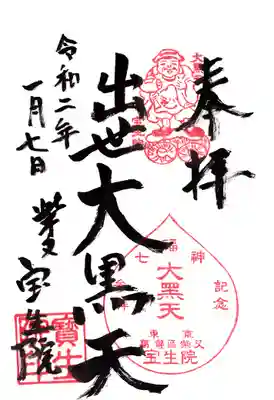 奉拝
出世大黒天
令和二年
一月七日
柴又
宝生院
大黑天
東京
葛飾區柴又
宝生院
七福神
記念
寳生